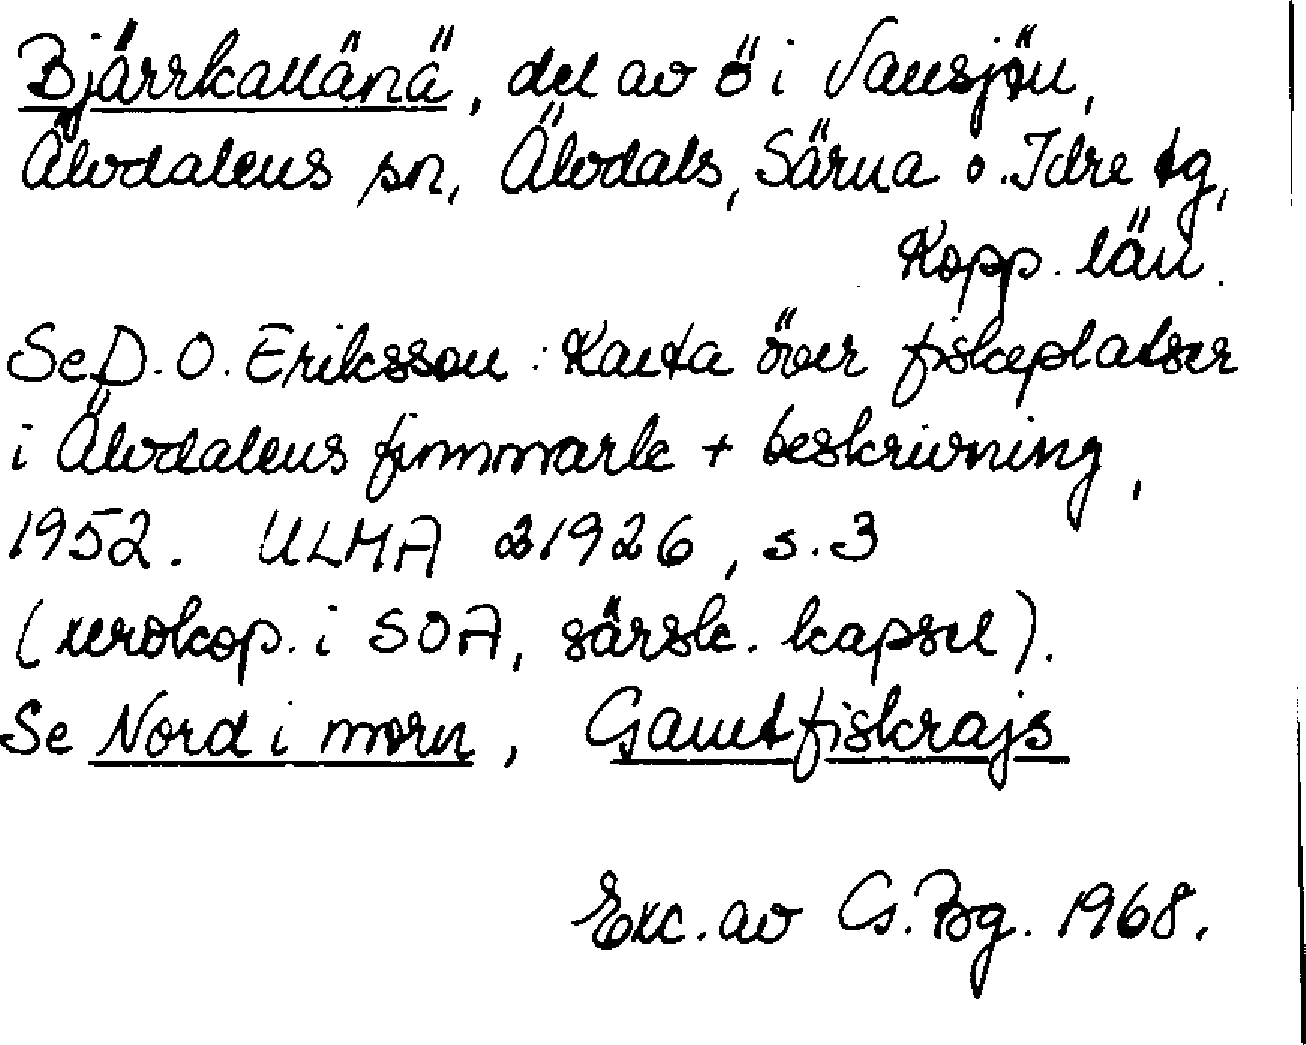 Bjärrkallänä, del av ö i Vansjön,
Älvdalens sn, Älvdals, Särna o. Idre tg,
Kopp. län.
Se D. O. Eriksson: Karta över fiskeplatser
i Älvdalens finnmark + beskrivning,
1952. ULMA 21926, s. 3
(xerokop. i SOA, särsk. kapsel).
Se Nord i morn, Gamtfiskrajs
Exc. av G. Bg. 1968.